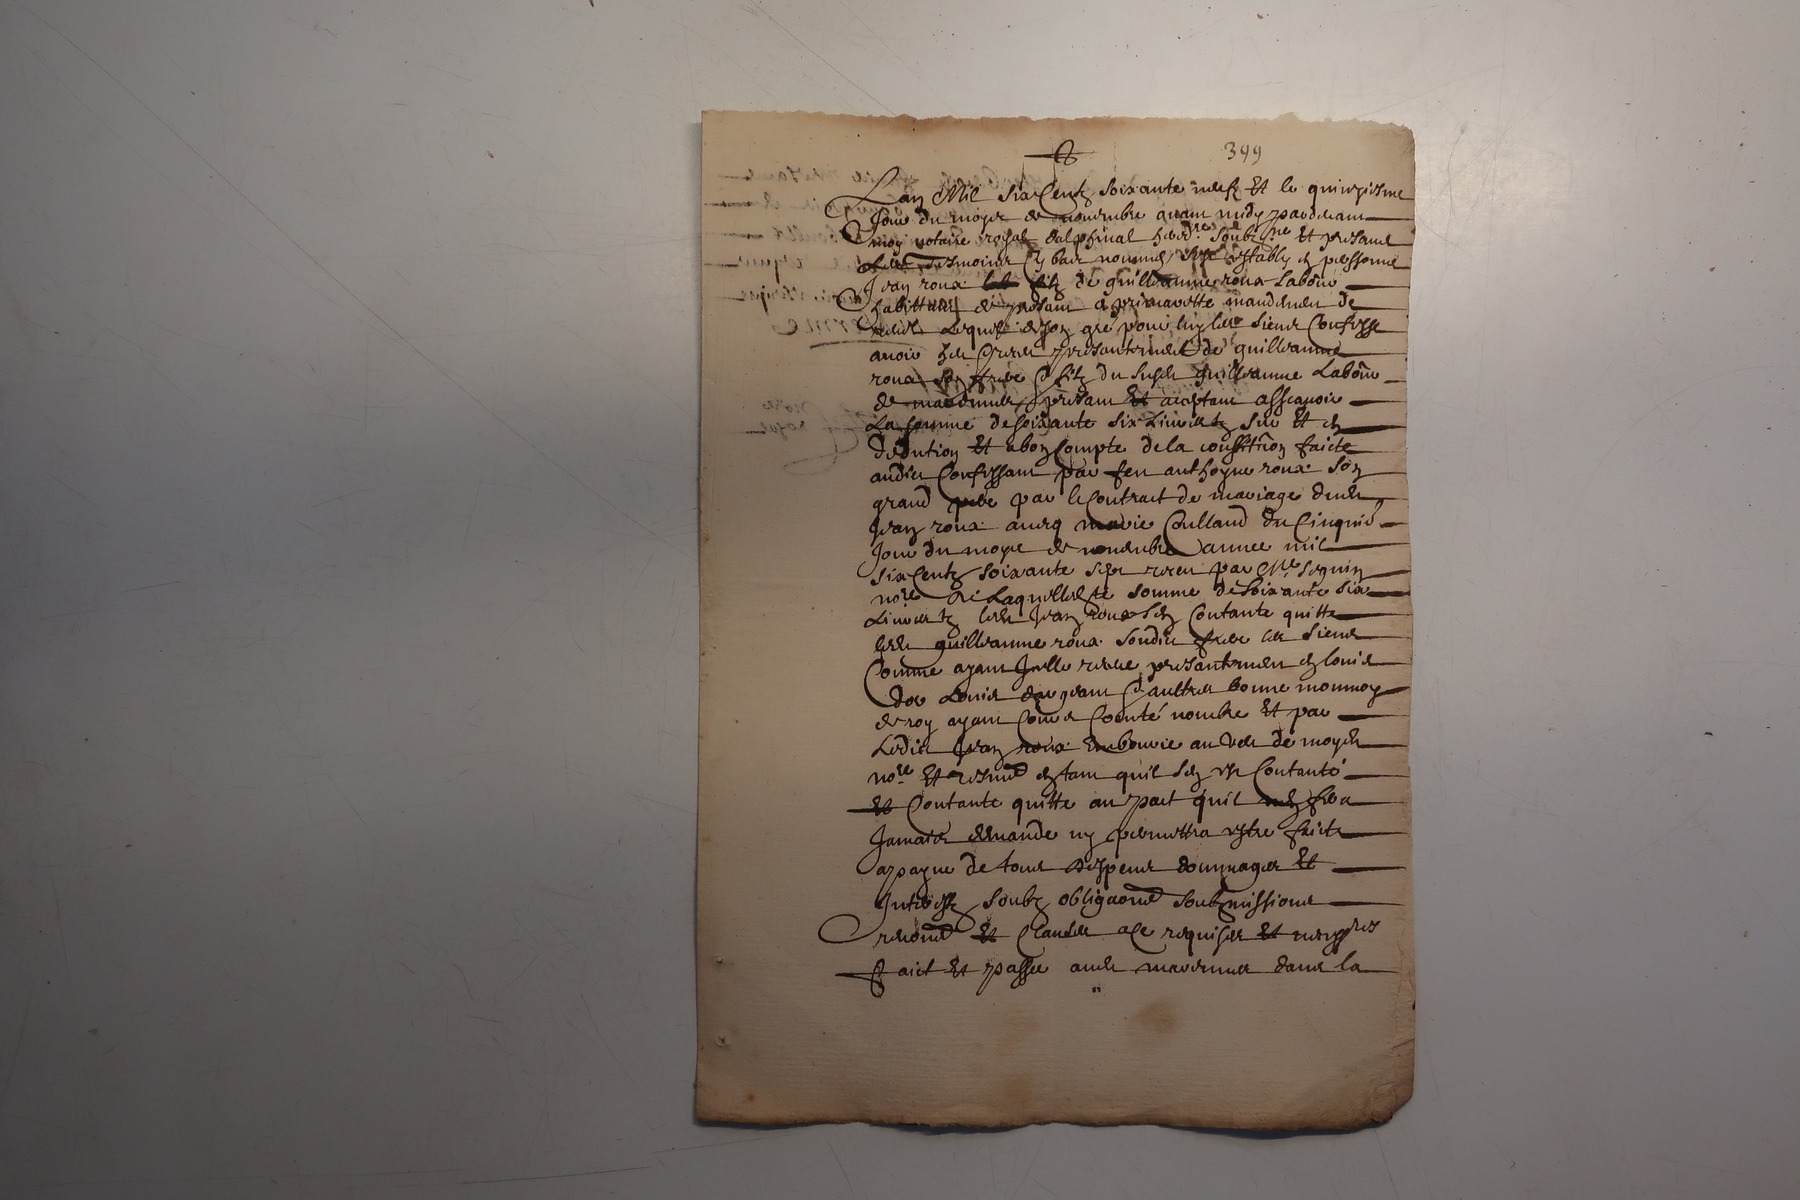 399
Lan Mil six Centz soixante neufz Et le quinziesme
Jour du moys de novembre avant midy pardevant
moy notaire royal dalphinal hered.re soubz.ne Et presans
Les tesmoins bas nommes sest estably en personne
Jean roux filz de guilleaume roux Labour
habittant de presant a primarette mandement de
Lequel de son gre pour luy les siens Confesse
avoir heu receu presantement de guilleaume
roux son frere filz du susd guilleaume Labour
de presant Et aceptant assavoir
La somme de soixante six Livres sur Et en
dedution Et abon Compte de la constitution faicte
audict Confessant par feu anthoyne roux son
grand pere par le Contract de mariage dud
Jean roux avecq marie Coulland du Cinquie
Jour du moys de novembre annee mil
six Centz soixante sept receu par Me seguin
no.re De Laquelle somme de soixante six
Livres led Jean roux sen Contante quitte
led guilleaume roux sondict frere les siens
Comme ayant Icelle receue presantement en louis
dor Louis dargeant Et aultres bonne monnoye
de roy ayant Cours Compté nombre Et par
Ledict Jean roux Emboursé au veu de moyd
no.re Et tesmoins en tant quil sen est Contanté
Et Contante quitte au pact quil nen fera
Jamais demande ny permettra estre faicte
a payne de tous despens dommages Et
Interestz soubz obligaons soubzmissions
renons Et Clauses a ce requises Et necess.res
Faict Et passé dans la